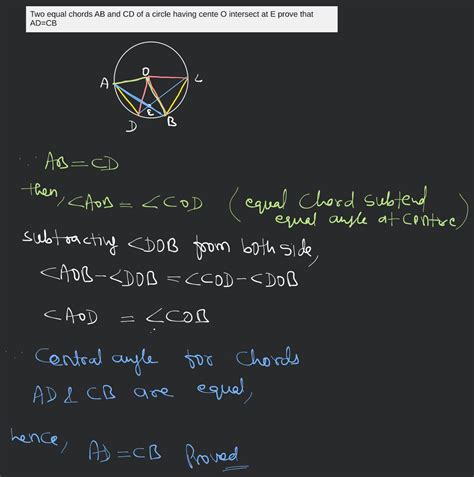 Two equal chords AB and CD of a circle having cente O intersect at E prove that
AD=CB
O
A
C
E
D
B
∵ AB = CD
then, ∠AOB = ∠COD (equal chord subtend
equal angle at centre)
subtracting ∠DOB from both side,
∠AOB - ∠DOB = ∠COD - ∠DOB
∠AOD = ∠COB
∵ Central angle for chords
AD & CB are equal,
hence, AD = CB Proved